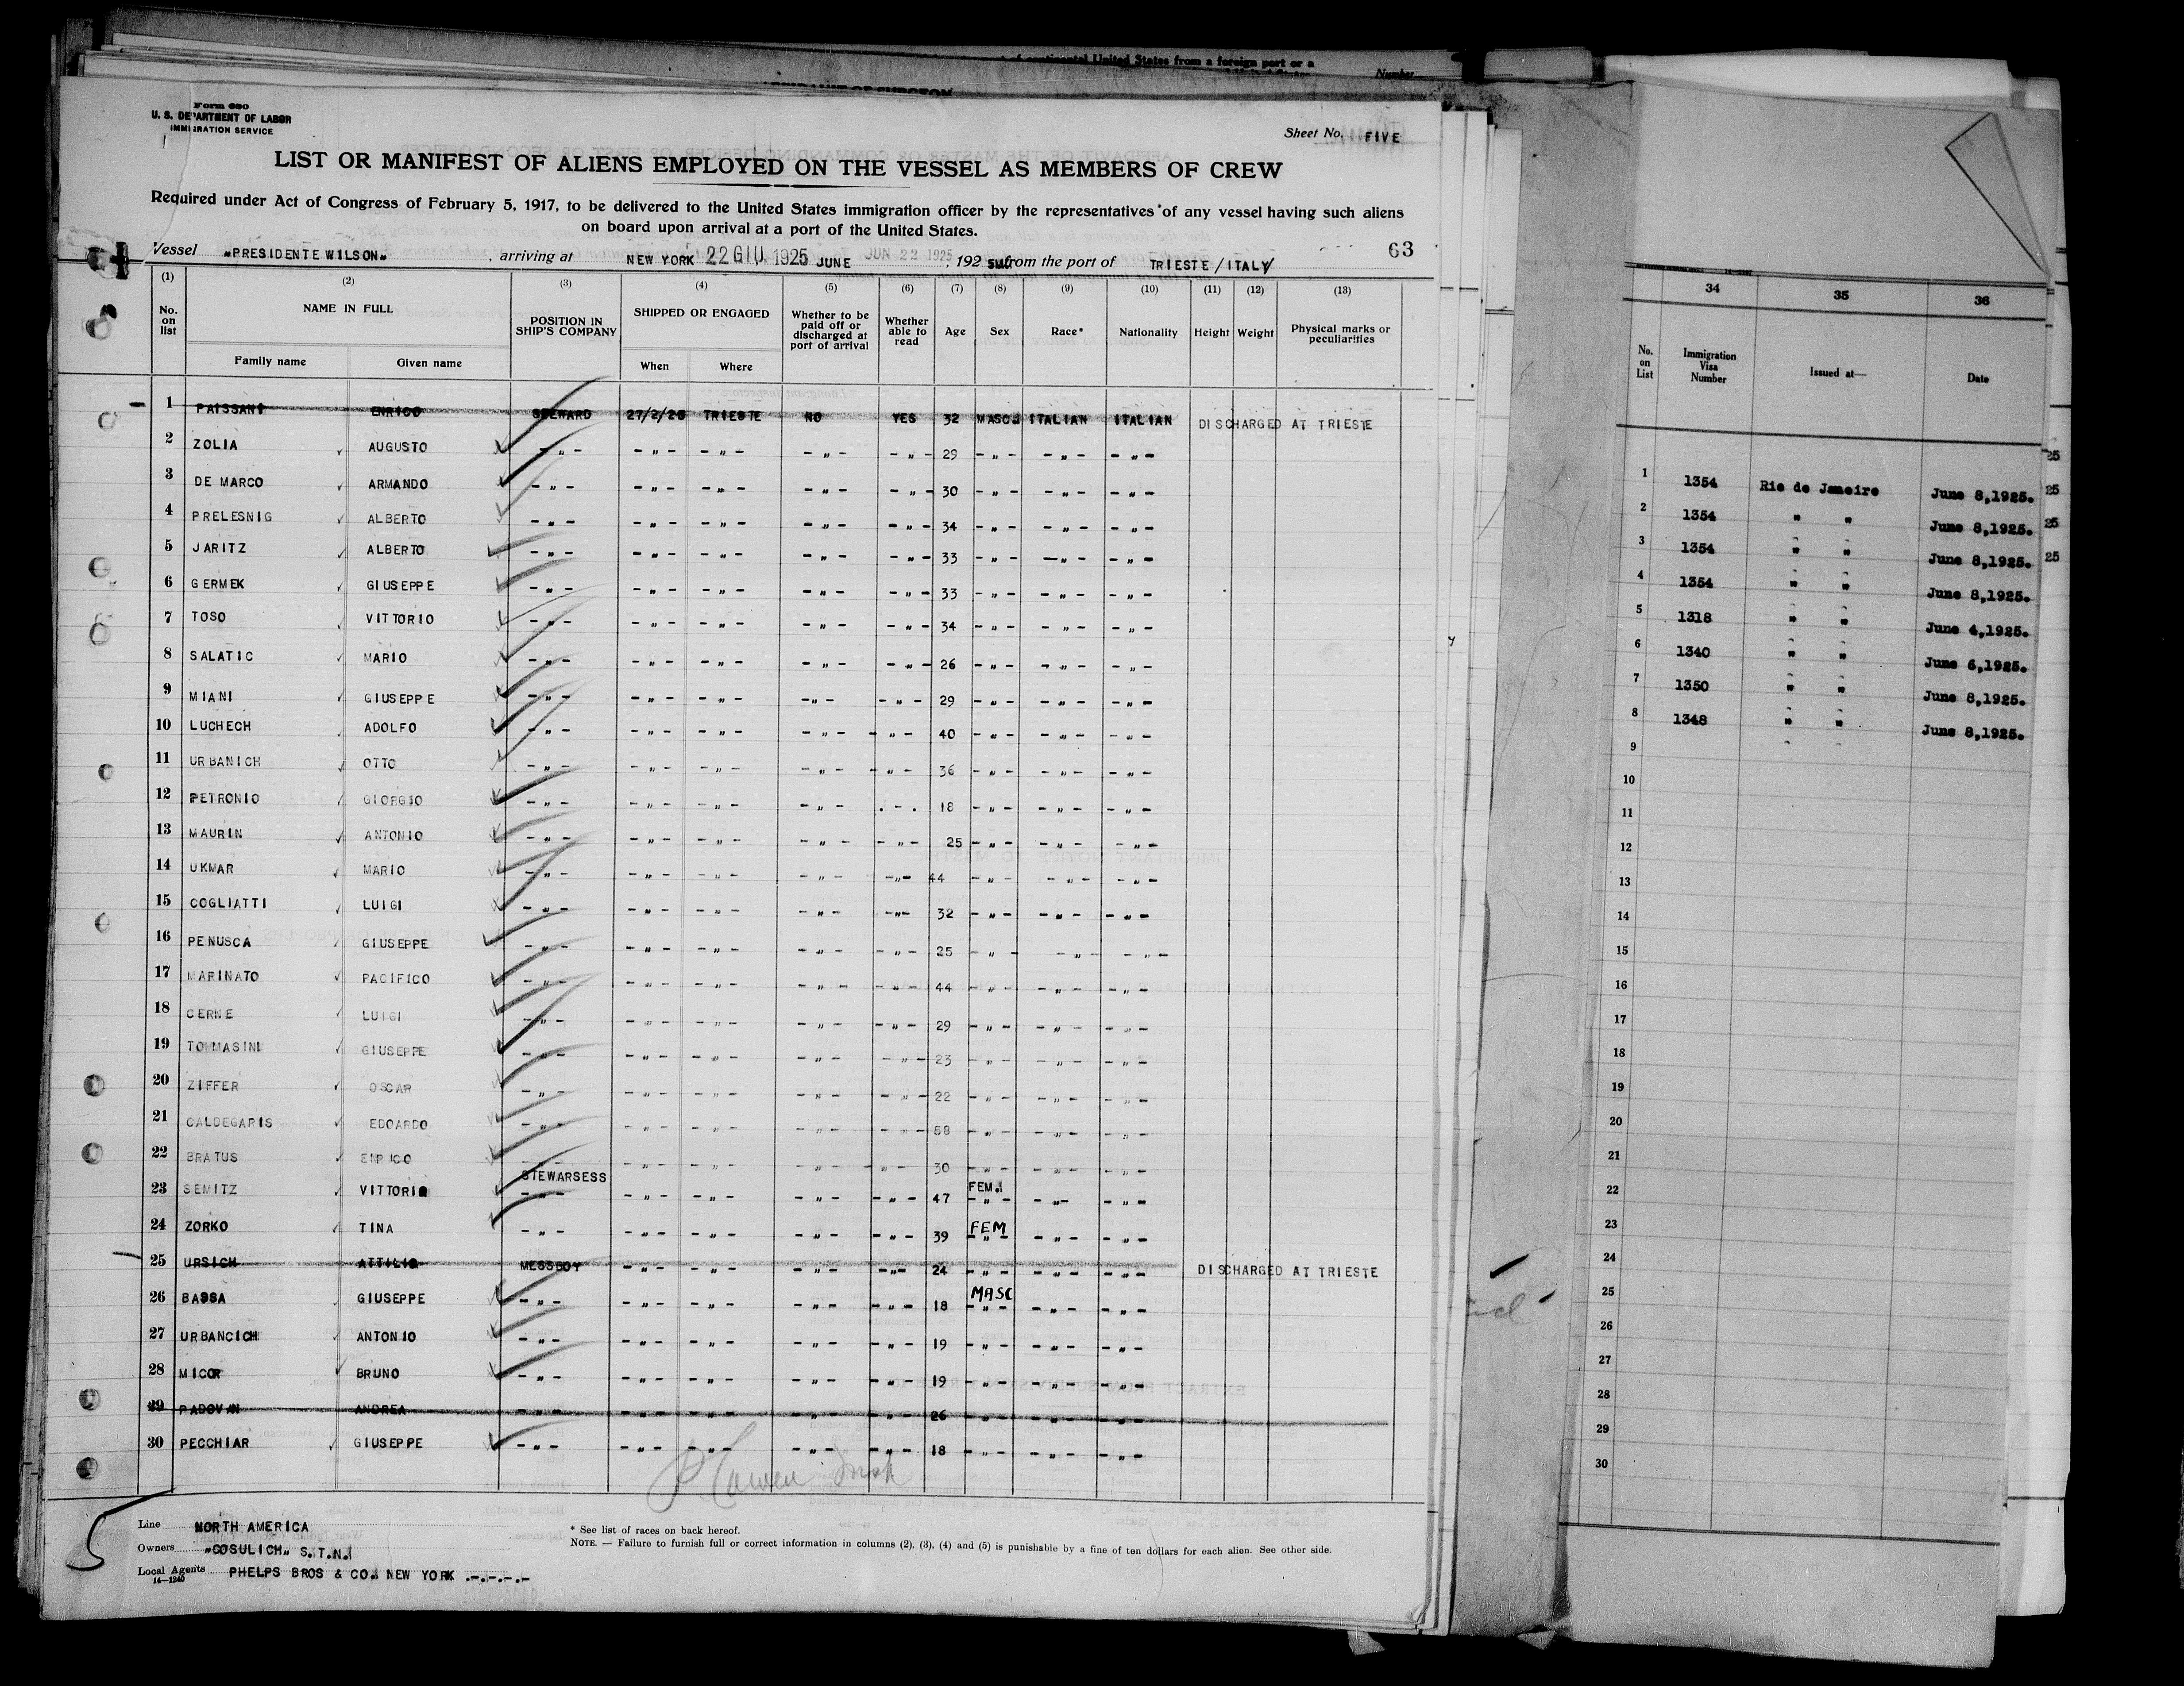 of continental United States from a foreign port or a
Number
Form 680
U. S. DEPARTMENT OF LABOR
IMMIGRATION SERVICE
Sheet No. FIVE
LIST OR MANIFEST OF ALIENS EMPLOYED ON THE VESSEL AS MEMBERS OF CREW
Required under Act of Congress of February 5, 1917, to be delivered to the United States immigration officer by the representatives of any vessel having such aliens
on board upon arrival at a port of the United States.
63
Vessel "PRESIDENTE WILSON", arriving at NEW YORK 22 GIU. 1925 JUNE JUN 22 1925, 192 from the port of TRIESTE/ITALY
(1) (2) (3) (4) (5) (6) (7) (8) (9) (10) (11) (12) (13)
No. on list NAME IN FULL POSITION IN SHIP'S COMPANY SHIPPED OR ENGAGED Whether to be paid off or discharged at port of arrival Whether able to read Age Sex Race* Nationality Height Weight Physical marks or peculiarities
Family name Given name When Where
1 PAISSANI ENRICO STEWARD 27/2/25 TRIESTE NO YES 32 MASC. ITALIAN ITALIAN DISCHARGED AT TRIESTE
2 ZOLIA AUGUSTO -"- -"- -"- -"- -"- 29 -"- -"- -"-
3 DE MARCO ARMANDO -"- -"- -"- -"- -"- 30 -"- -"- -"-
4 PRELESNIG ALBERTO -"- -"- -"- -"- -"- 34 -"- -"- -"-
5 JARITZ ALBERTO -"- -"- -"- -"- -"- 33 -"- -"- -"-
6 GERMEK GIUSEPPE -"- -"- -"- -"- -"- 33 -"- -"- -"-
7 TOSO VITTORIO -"- -"- -"- -"- -"- 34 -"- -"- -"-
8 SALATIC MARIO -"- -"- -"- -"- -"- 26 -"- -"- -"-
9 MIANI GIUSEPPE -"- -"- -"- -"- -"- 29 -"- -"- -"-
10 LUCHECH ADOLFO -"- -"- -"- -"- -"- 40 -"- -"- -"-
11 URBANICH OTTO -"- -"- -"- -"- -"- 36 -"- -"- -"-
12 PETRONIO GIORGIO -"- -"- -"- -"- .-. 18 -"- -"- -"-
13 MAURIN ANTONIO -"- -"- -"- -"- -"- 25 -"- -"- -"-
14 UKMAR MARIO -"- -"- -"- -"- -"- 44 -"- -"- -"-
15 COGLIATTI LUIGI -"- -"- -"- -"- -"- 32 -"- -"- -"-
16 PENUSCA GIUSEPPE -"- -"- -"- -"- -"- 25 -"- -"- -"-
17 MARINATO PACIFICO -"- -"- -"- -"- -"- 44 -"- -"- -"-
18 CERNE LUIGI -"- -"- -"- -"- -"- 29 -"- -"- -"-
19 TOMMASINI GIUSEPPE -"- -"- -"- -"- -"- 23 -"- -"- -"-
20 ZIFFER OSCAR -"- -"- -"- -"- -"- 22 -"- -"- -"-
21 CALDEGARIS EDOARDO -"- -"- -"- -"- -"- 58 -"- -"- -"-
22 BRATUS ENRICO -"- -"- -"- -"- -"- 30 -"- -"- -"-
23 SEMITZ VITTORIA STEWARSESS -"- -"- -"- -"- -"- 47 FEM. -"- -"- -"-
24 ZORKO TINA -"- -"- -"- -"- -"- 39 FEM -"- -"- -"-
25 URSICH ATTILIO MESSBOY -"- -"- -"- -"- 24 -"- -"- -"- DISCHARGED AT TRIESTE
26 BASSA GIUSEPPE -"- -"- -"- -"- -"- 18 MASC -"- -"- -"-
27 URBANCICH ANTONIO -"- -"- -"- -"- -"- 19 -"- -"- -"-
28 MICOR BRUNO -"- -"- -"- -"- -"- 19 -"- -"- -"-
29 PADOVAN ANDREA -"- -"- -"- -"- -"- 26 -"- -"- -"-
30 PECCHIAR GIUSEPPE -"- -"- -"- -"- -"- 18 -"- -"- -"-
5
Line NORTH AMERICA
Owners "COSULICH" S.T.N.
Local Agents PHELPS BROS & CO. NEW YORK .-.-.-.-
14-1240
* See list of races on back hereof.
NOTE. — Failure to furnish full or correct information in columns (2), (3), (4) and (5) is punishable by a fine of ten dollars for each alien. See other side.
34 35 36
No. on List Immigration Visa Number Issued at— Date
25
1 1354 Rio de Janeiro June 8,1925. 25
2 1354 " " June 8,1925. 25
3 1354 " " June 8,1925. 25
4 1354 " " June 8,1925.
5 1318 " " June 4,1925.
6 1340 " " June 6,1925.
7 1350 " " June 8,1925.
8 1348 " " June 8,1925.
9
10
11
12
13
14
15
16
17
18
19
20
21
22
23
24
25
26
27
28
29
30